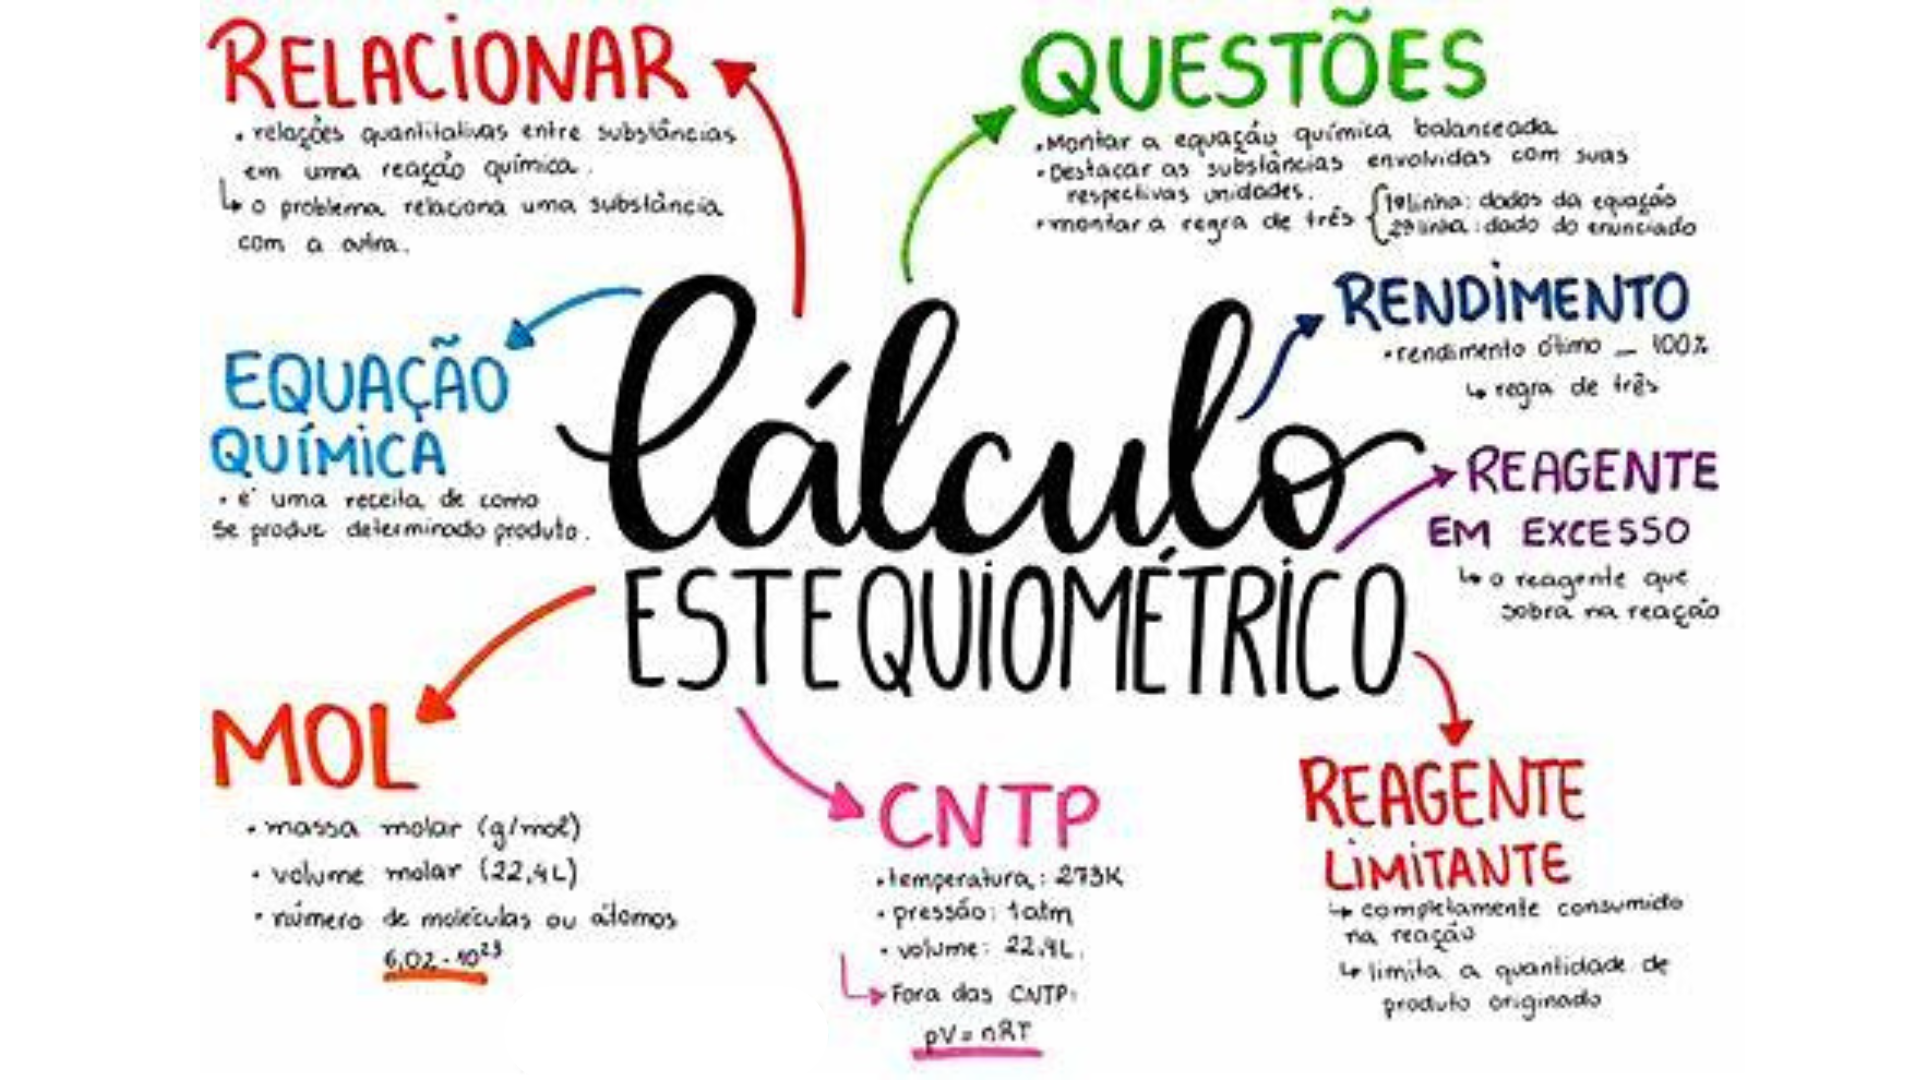 RELACIONAR
• relações quantitativas entre substâncias
em uma reação química.
↳ o problema relaciona uma substância
com a outra.
QUESTÕES
• Montar a equação química balanceada
• Destacar as substâncias envolvidas com suas
respectivas unidades.
• montar a regra de três { 1ª linha: dados da equação
2ª linha: dado do enunciado
EQUAÇÃO
QUÍMICA
• é uma receita de como
se produz determinado produto.
Cálculo
ESTEQUIOMÉTRICO
RENDIMENTO
• rendimento ótimo _ 100%
↳ regra de três
REAGENTE
EM EXCESSO
↳ o reagente que
sobra na reação
MOL
• massa molar (g/mol)
• volume molar (22,4L)
• número de moléculas ou átomos
6,02 · 10²³
CNTP
• temperatura: 273K
• pressão: 1atm
• volume: 22,4L.
Fora das CNTP:
pV = nRT
REAGENTE
LIMITANTE
↳ completamente consumido
na reação
↳ limita a quantidade de
produto originado